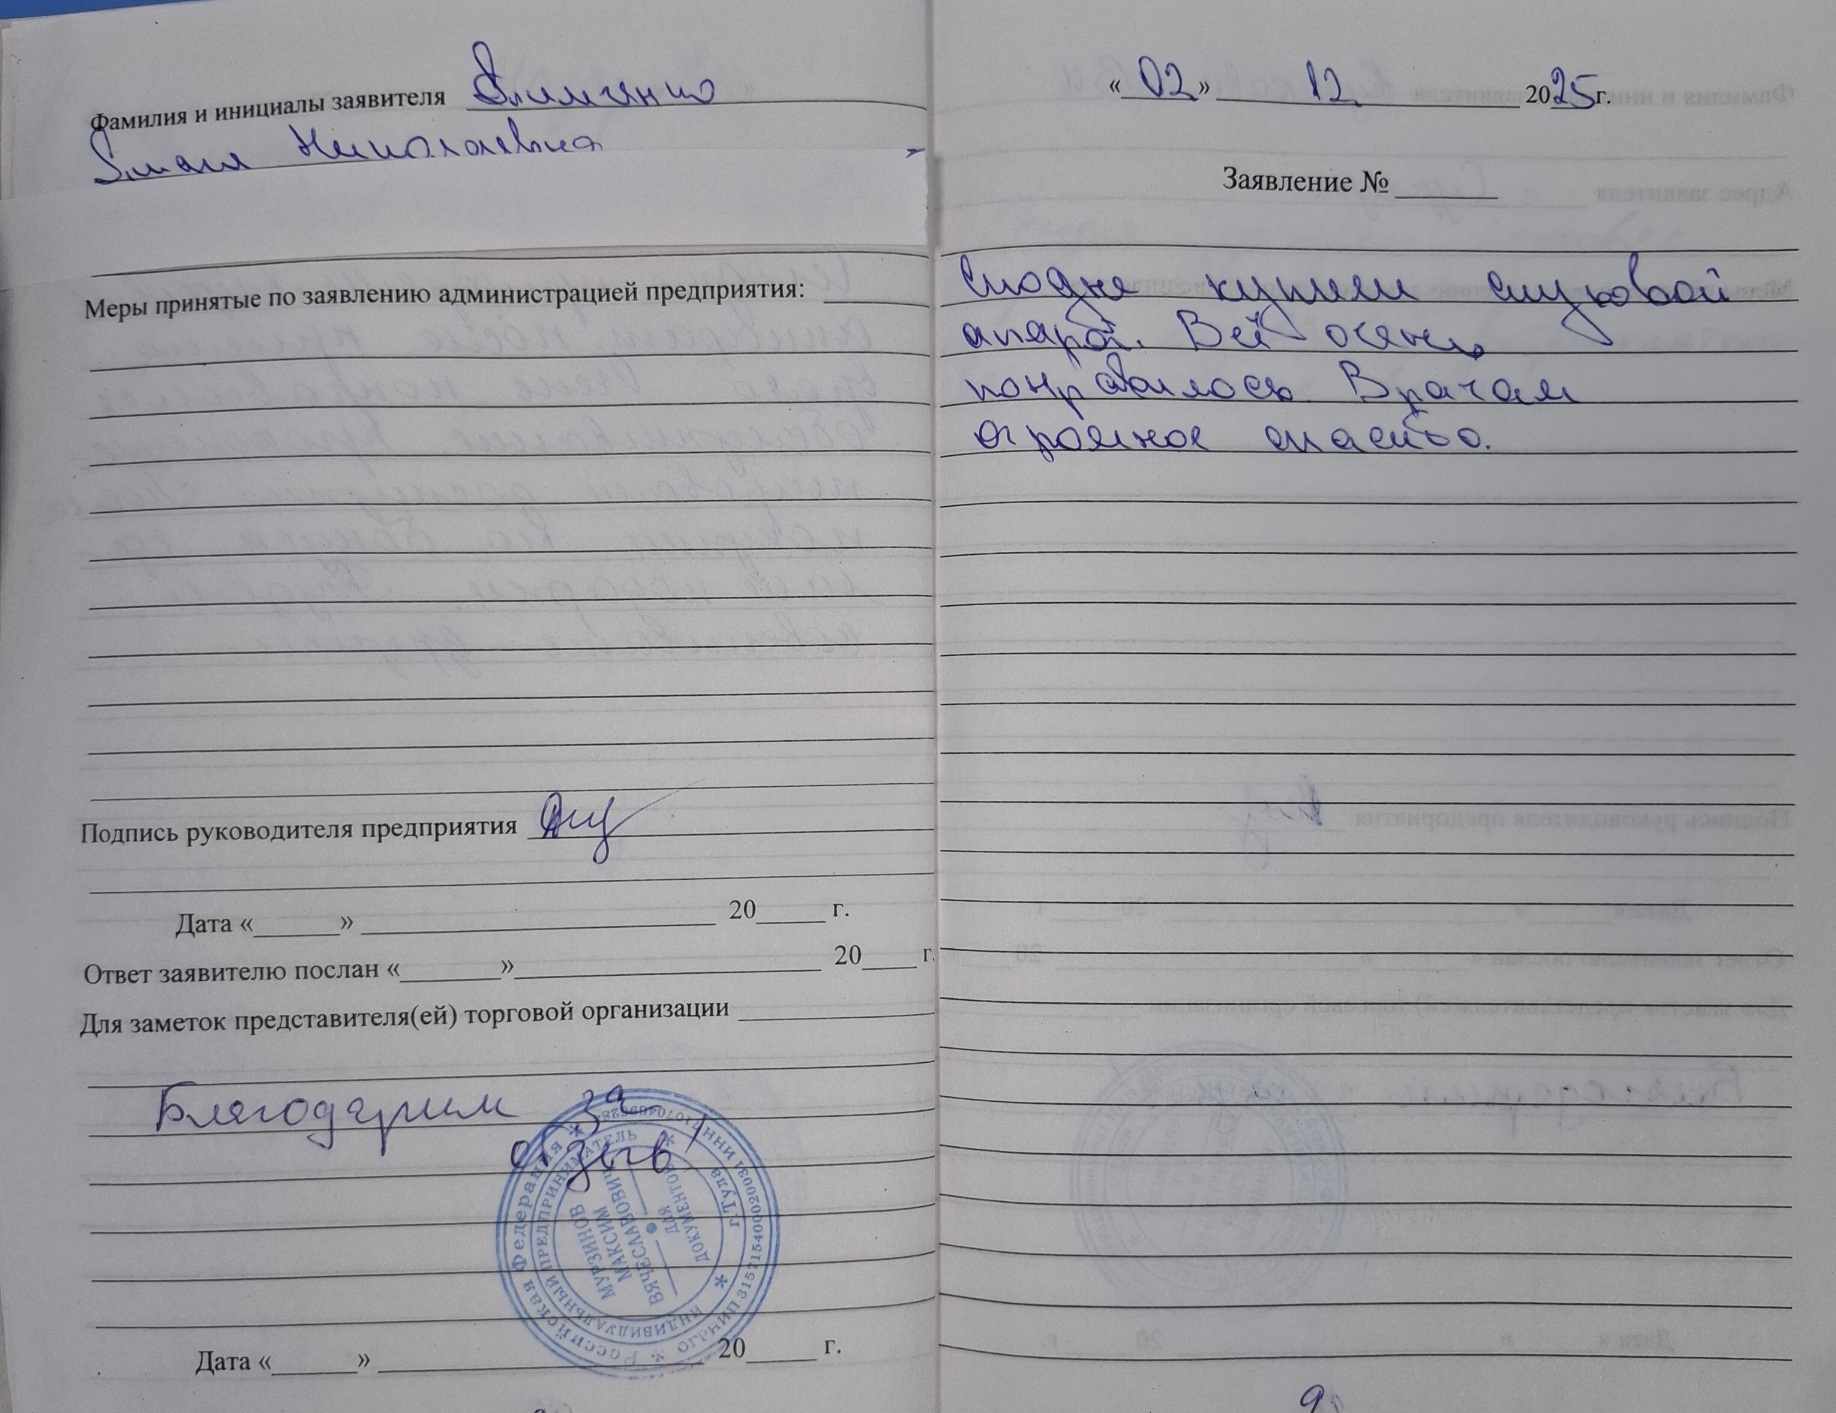 Фамилия и инициалы заявителя
Николаевна
Меры принятые по заявлению администрацией предприятия:
Подпись руководителя предприятия
Дата «______» ______ 20____ г.
Ответ заявителю послан «______» ______ 20____ г.
Для заметок представителя(ей) торговой организации
Благодарим за
отзыв!
Российская Федерация * ОГРНИП 315715400020031 ИНН
г. Тула * ИНДИВИДУАЛЬНЫЙ ПРЕДПРИНИМАТЕЛЬ *
МУРЗИНОВ
МАКСИМ
ВЯЧЕСЛАВОВИЧ
ДЛЯ
ДОКУМЕНТОВ
Дата «______» ______ 20____ г.
«02» 12 2025г.
Заявление № ______
купили слуховой
апарат. Всё очень
понравилось. Врачам
огромное спасибо.
9